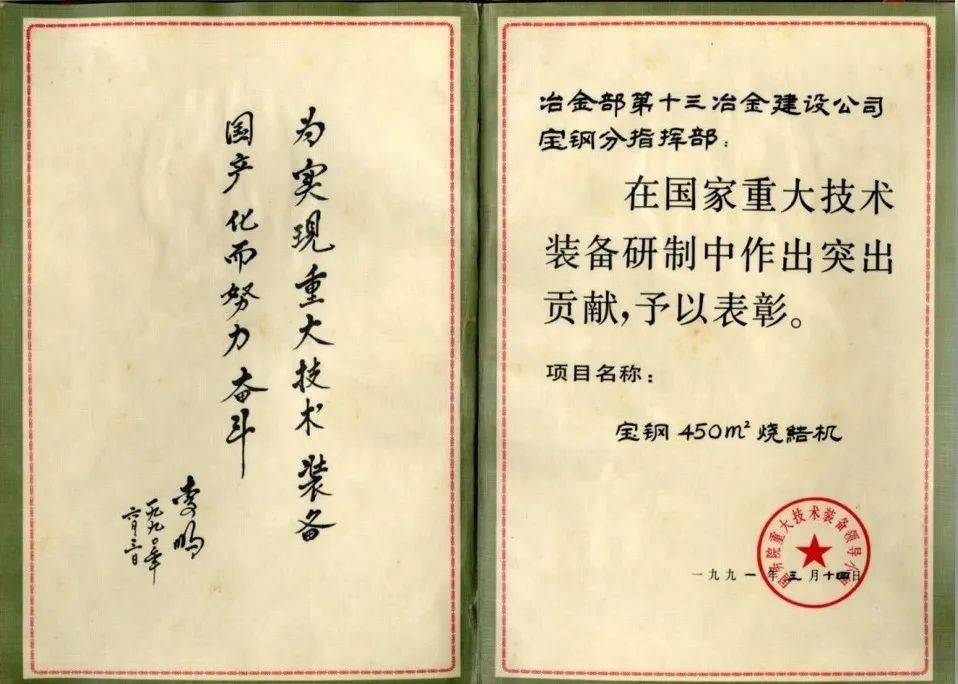 为实现重大技术装备
国产化而努力奋斗
李鹏
一九九〇年
六月三日
冶金部第十三冶金建设公司
宝钢分指挥部：
在国家重大技术
装备研制中作出突出
贡献，予以表彰。
项目名称：
宝钢450m²烧结机
国务院重大技术装备领导小组
一九九一年三月十四日